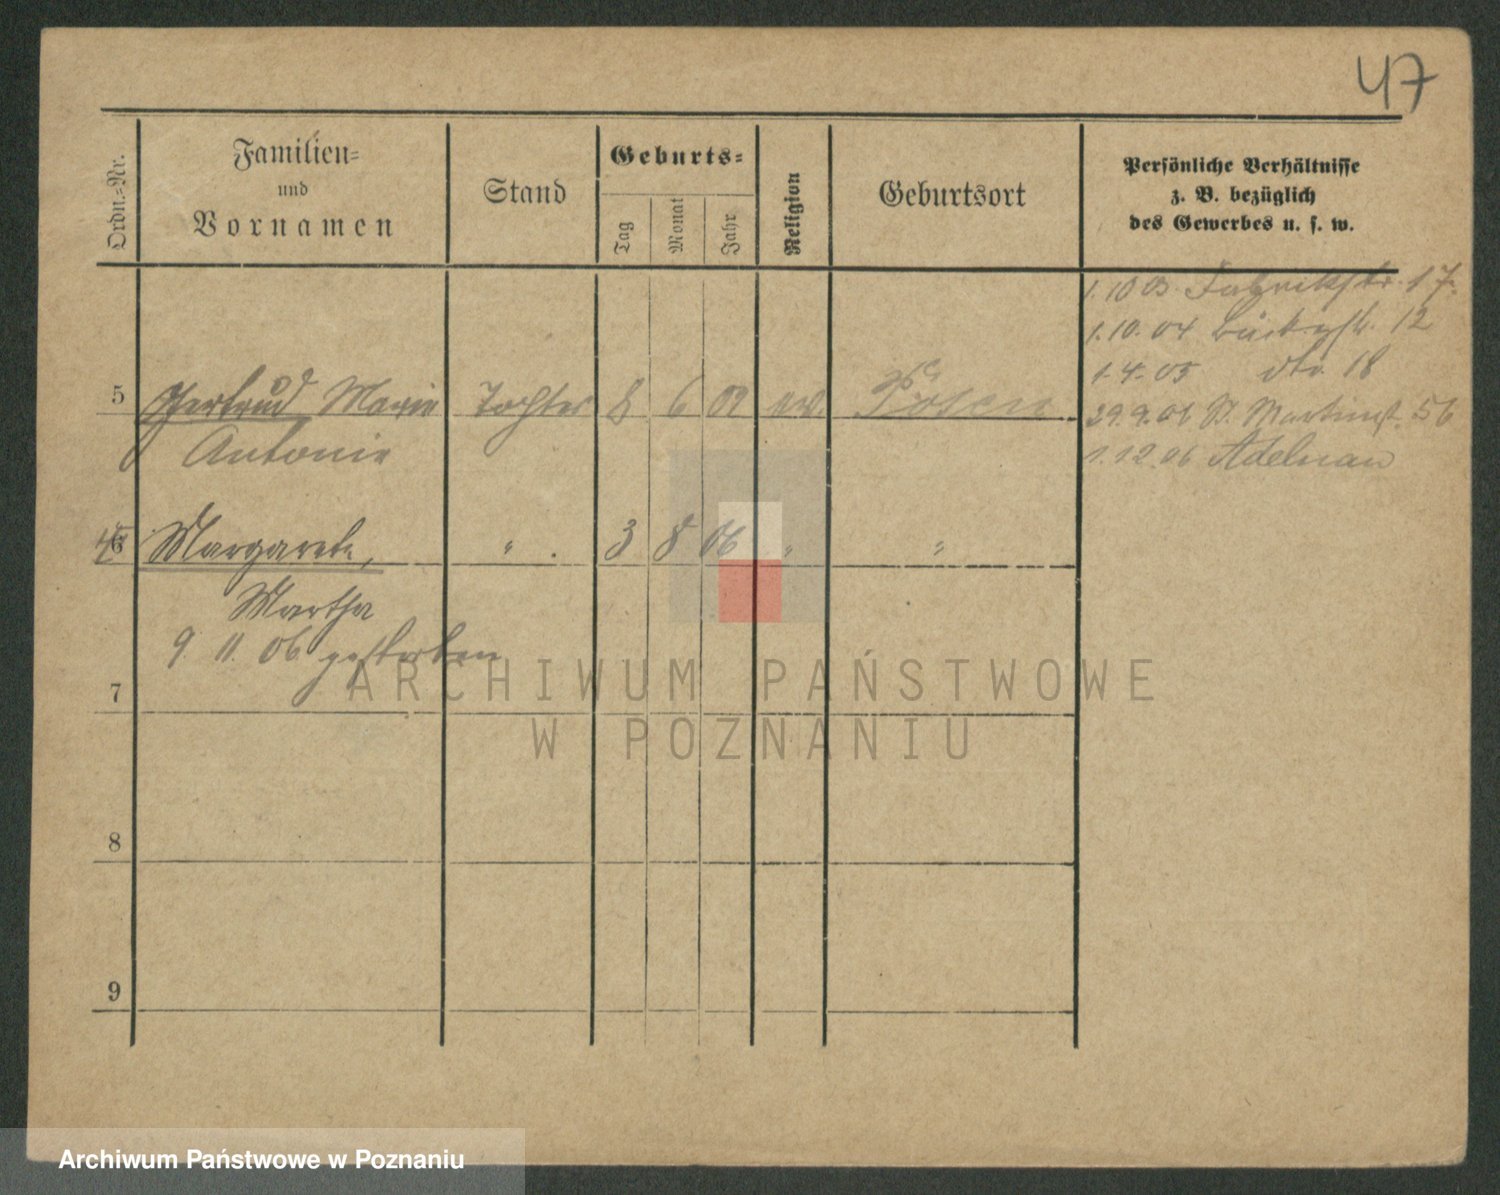 47
Ordn.=Nr.
Familien=
und
Vornamen
Stand
Geburts=
Tag
Monat
Jahr
Religion
Geburtsort
Persönliche Verhältnisse
z. B. bezüglich
des Gewerbes u. s. w.
1.10 03 Fabrikstr. 17
1.10.04 12
1.4.05 dto. 18
5 Gertrud Marie Tochter 8 6 ev. Posen
29.9.06 St. Martinst. 56
Antonie
1.12.06 Adelnau
6 Margarete, " . 3 8 06 " "
Martha
9. 11. 06 gestorben
7
8
9
ARCHIWUM PAŃSTWOWE
W POZNANIU
Archiwum Państwowe w Poznaniu